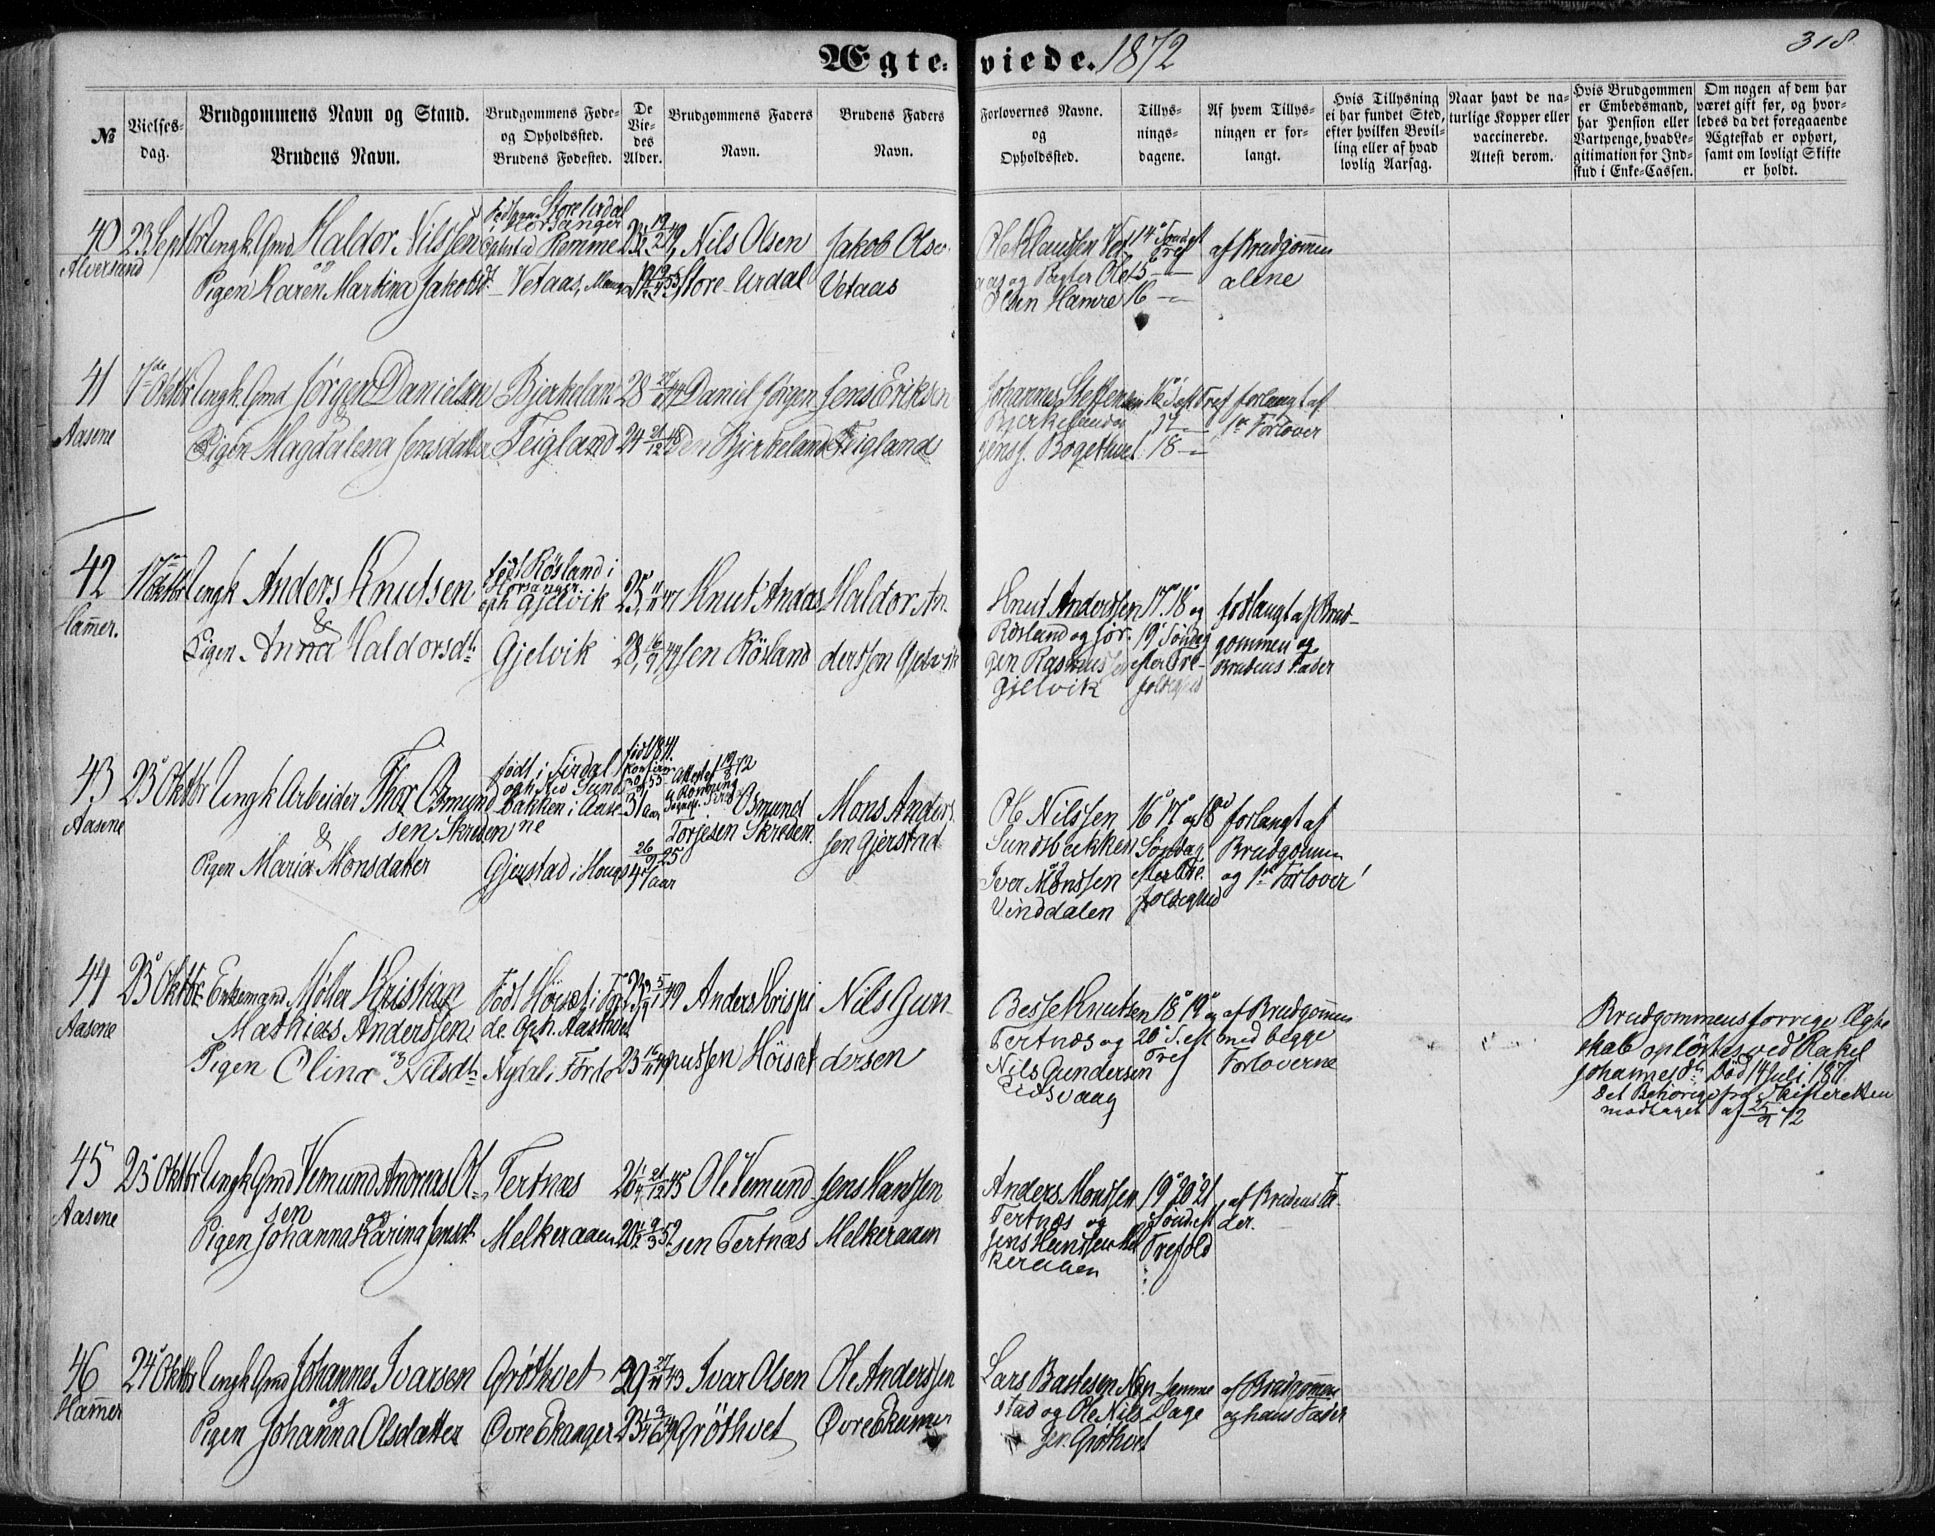 Ægteviede. 1872
318
№
Vielses-
dag.
Brudgommens Navn og Stand.
Brudens Navn.
Brudgommens Føde-
og Opholdssted.
Brudens Fødested.
De
Vie-
des
Alder.
Brudgommens Faders
Navn.
Brudens Faders
Navn.
Forlovernes Navne.
og
Opholdssted.
Tillys-
nings-
dagene.
Af hvem Tillys-
ningen er for-
langt.
Hvis Tillysning
ei har fundet Sted,
efter hvilken Bevil-
ling eller af hvad
lovlig Aarsag.
Naar havt de na-
turlige Kopper eller
vaccinerede.
Attest derom.
Hvis Brudgommen
er Embedsmand,
har Pension eller
Vartpenge, hvad Le-
gitimation for Ind-
skud i Enke-Cassen.
Om nogen af dem har
været gift før, og hvor-
ledes da det foregaaende
Ægteskab er ophørt,
samt om lovligt Skifte
er holdt.
40
Alversund
23 Septbr
Ungk. Gmd Haldor Nilssen
og
Pigen Karen Martina Jakobsdt
Store Urdal
i Horsanger
Hemme
Vetaas,
Nils Olsen
Store-Urdal
Jakob Olse
Vetaas
Ole Klaussen Vet
aas og Pagter Ole
Olsen Hamre
14 Sondeft
Tref
15 –
16 –
af Brudgommen
alene
41
Aasene
Oktbr
Ungk. Gmd Jørgen Danielsen
&
Pigen Magdalena Jensdatter
Bjerkeland
Teigland
28 27/11 44
24 21/12 48
Daniel Jørgen
sen Bjerkeland
Jens Eriksen
Teigland
Johannes Steffensen
Bjerkeland og
Jens J. Bogetveit
16 S. eft Tref
17 –
18 –
forlangt af
1e Forlover
42
Hamer.
17 Oktbr
Ungk Anders Knutsen
&
Pigen Anna Haldorsdt
født Røsland i
Horsanger
oph Gjelvik
Gjelvik
25, 11/11 47
28, 16/9 44
Knut Anders
sen Røsland
Haldor An-
derssen Gjelvik
Knut Anderssen
Røsland og Jør-
gen Rasmussen
Gjelvik
17 18 og
19 Søndag
efter Tre-
foldighed
forlangt af Brud-
gommen og
Brudens Fader
43
Aasene
23 Oktbr
Ungk Arbeider Thor Osmund
sen Skreden
&
Pigen Maria Monsdatter
født i Sirdal
oph ved Sunds
bakken i Aase-
ne
Gjerstad i Hougs
født 1841.
31 aar
26/9 25
47 aar
Attest 19/8 72
Osmund
Torjesen Skreden
Mons Anders
sen Gjerstad
Ole Nilssen
Sundsbakken
og
Iver Monssen
Vinddalen
16 17 og 18
Søndag
efter Tre-
foldighed
forlangt af
Brudgommen
og 1e Forlover
44
Aasene
23 Oktbr
Enkemand Møller Kristian
Mathias Anderssen
og
Pigen Olina Nilsdt
Født Høiset i Før
de. Oph. Aastvet
Nydal, Førde
Anders Krispi
nussen Høiset
Nils Gun-
dersen
Besse Knutsen
Tertnæs og
Nils Gundersen
Eidsvaag
18 19 og
20 S. eft
Tref
af Brudgommen
med begge
Forloverne
Brudgommens forrige Ægte
skab opløstes ved Rakel
Johannesdt Død 14 Juli 1871.
Det Behørige fra Skifteretten
modtaget af 25/9 72
45
Aasene
23 Oktbr
Ungk Gmd Vemund Andreas Ol-
sen
og
Pigen Johanna Karina Jensdt
Tertnæs
Melkeraaen
26 21/12 45
20 9/3 52
Ole Vemund-
sen Tertnæs
Jens Hanssen
Melkeraaen
Anders Monssen
Tertnæs og
Jens Hanssen Mel
keraaen
19 20 21
Sond. eft
Trefold
af Brudens Fa-
der.
46
Hamer
24 Oktbr
Ungk Gmd Johannes Ivarsen
og
Pigen Johanna Olsdatter
Grøthvet
Øvre Ekanger
29 27/11 43
Ivar Olsen
Grøthvet
Ole Anderssen
Øvre Ekanger
Lars Bastesen Nep-
stad og Ole Nils
sen Grøthvet
samme
Dage
af Brudgommen
og hans Fader